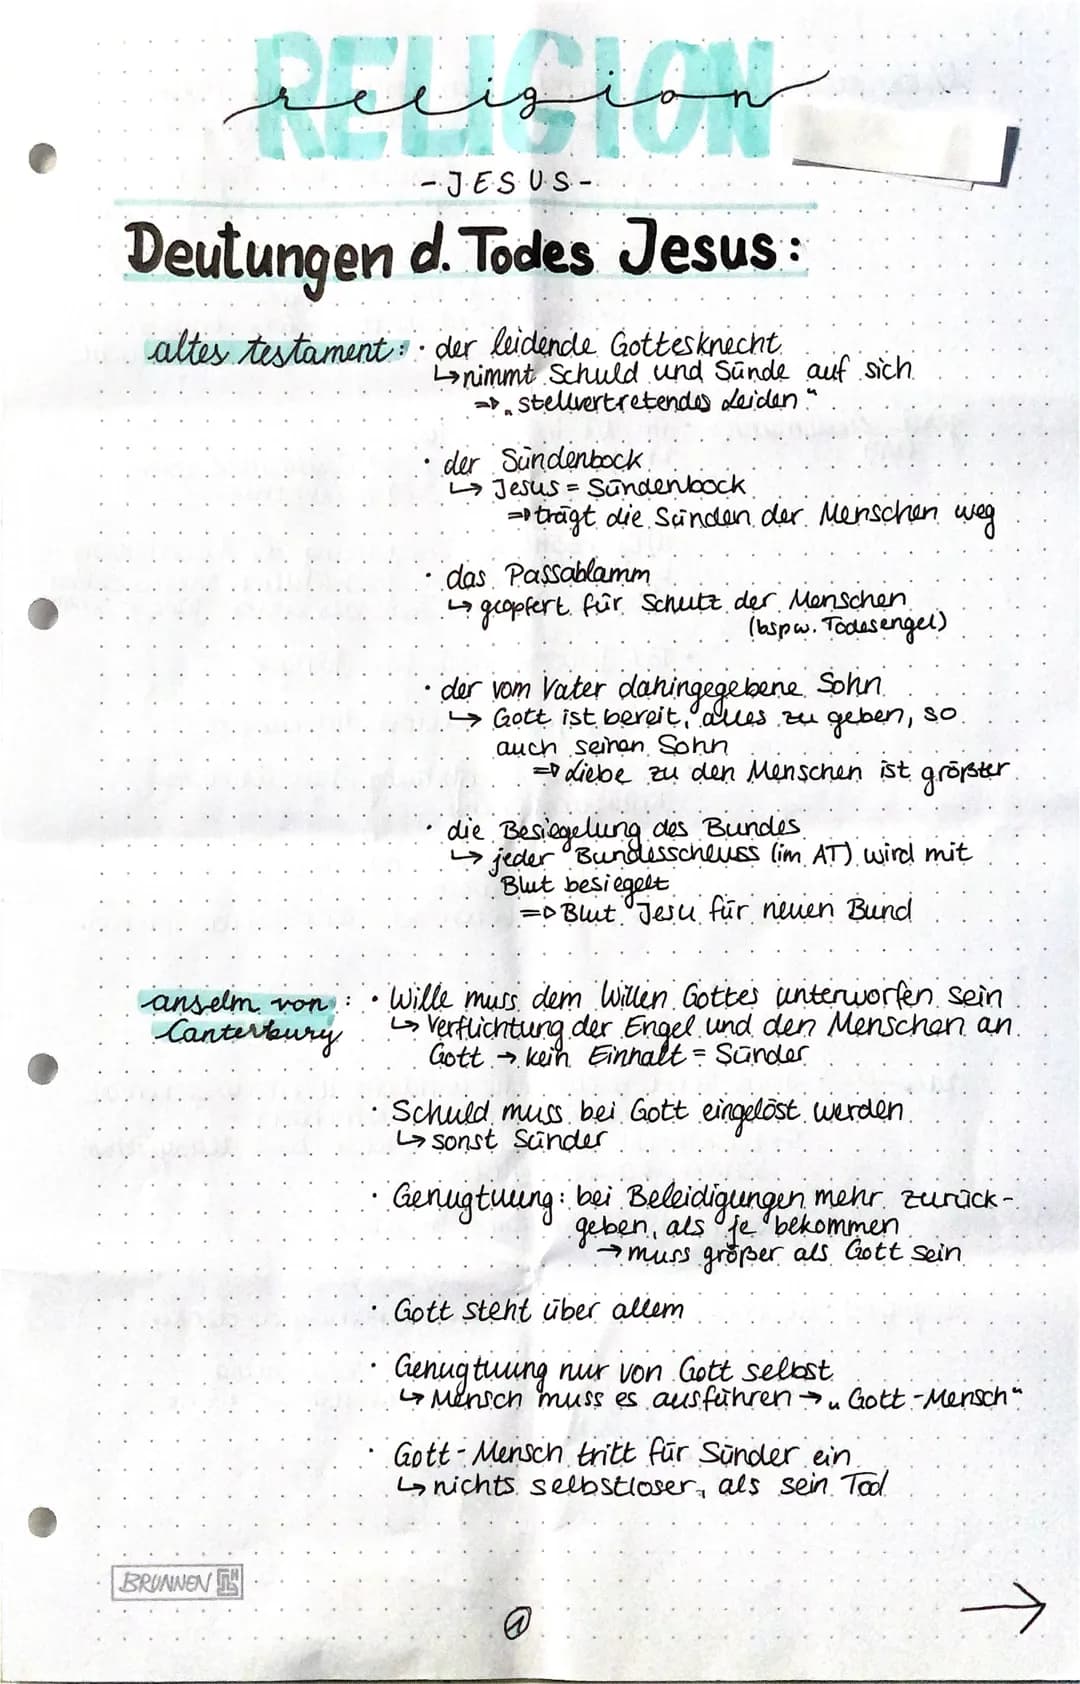 RELIGION
religion
-JESUS-
Deutungen d. Todes Jesus:
altes testament: · der leidende Gottesknecht
↳ nimmt Schuld und Sünde auf sich
⇒ „stellvertretendes Leiden“
· der Sündenbock
↳ Jesus = Sündenbock
⇒ trägt die Sünden der Menschen weg
· das Passablamm
↳ geopfert für Schutz der Menschen
(bspw. Todesengel)
· der vom Vater dahingegebene Sohn
↳ Gott ist bereit, alles zu geben, so
auch seinen Sohn
⇒ Liebe zu den Menschen ist größter
· die Besiegelung des Bundes
↳ jeder Bundesschluss (im AT) wird mit
Blut besiegelt
⇒ Blut Jesu für neuen Bund
anselm von : · Wille muss dem Willen Gottes unterworfen sein
Canterbury ↳ Verflichtung der Engel und den Menschen an
Gott → kein Einhalt = Sünder
· Schuld muss bei Gott eingelöst werden
↳ sonst Sünder
· Genugtuung: bei Beleidigungen mehr zurück-
geben, als je bekommen
→ muss größer als Gott sein
· Gott steht über allem
· Genugtuung nur von Gott selbst
↳ Mensch muss es ausführen → „Gott-Mensch“
· Gott-Mensch tritt für Sünder ein
↳ nichts selbstloser, als sein Tod
BRUNNEN
①
→